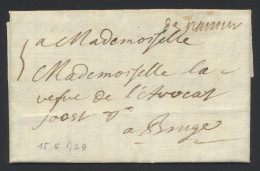 de namur
a Mademoiselle
Mademoiselle la
vefve de l'Avocat
joost
a Bruge
15 6 1729